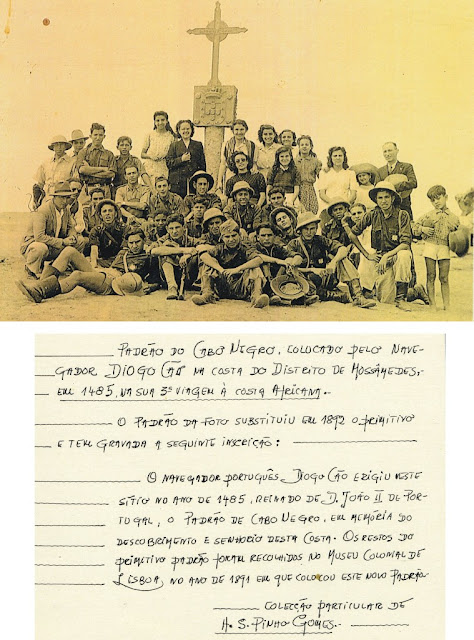 PADRÃO DO CABO NEGRO, COLOCADO PELO NAVE-
GADOR DIOGO CÃO NA COSTA DO DISTRITO DE MOSSÂMEDES,
EM 1485, NA SUA 3ª VIAGEM À COSTA AFRICANA.-
O PADRÃO DA FOTO SUBSTITUIU EM 1892 O PRIMITIVO
E TEM GRAVADA A SEGUINTE INSCRIÇÃO:
O NAVEGADOR PORTUGUÊS, DIOGO CÃO ERIGIU NESTE
SÍTIO NO ANO DE 1485, REINADO DE D. JOÃO II, DE POR-
TUGAL, O PADRÃO DE CABO NEGRO, EM MEMÓRIA DO
DESCOBRIMENTO E SENHORIO DESTA COSTA. OS RESTOS DO
PRIMITIVO PADRÃO FORAM RECOLHIDOS NO MUSEU COLONIAL DE
LISBOA, NO ANO DE 1891 EM QUE COLOCOU ESTE NOVO PADRÃO.
COLECÇÃO PARTICULAR DE
A. S. PINHO GOMES.-